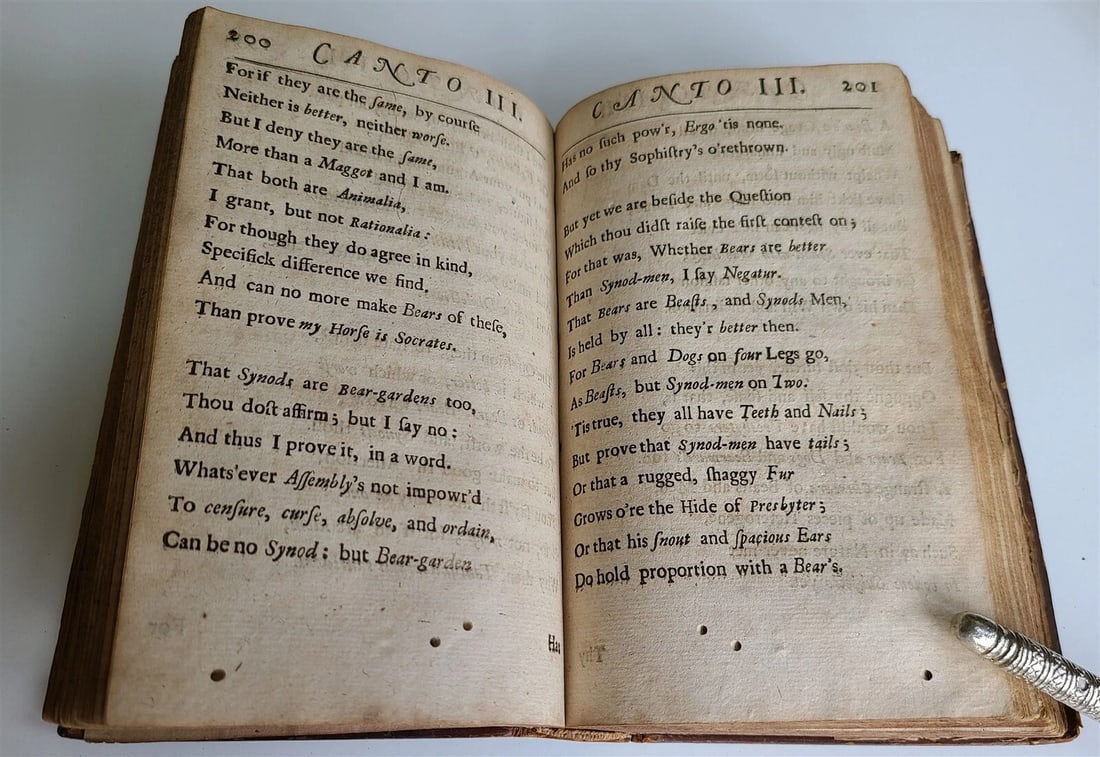 200 CANTO III.
For if they are the ſame, by courſe
Neither is better, neither worſe.
But I deny they are the ſame,
More than a Maggot and I am.
That both are Animalia,
I grant, but not Rationalia:
For though they do agree in kind,
Specifick difference we find.
And can no more make Bears of theſe,
Than prove my Horſe is Socrates.
That Synods are Bear-gardens too,
Thou doſt affirm; but I ſay no:
And thus I prove it, in a word.
Whats'ever Aſſembly's not impowr'd
To cenſure, curſe, abſolve, and ordain,
Can be no Synod: but Bear-garden
Has
CANTO III. 201
Has no ſuch pow'r, Ergo 'tis none.
And ſo thy Sophiſtry's o'rethrown.
But yet we are beſide the Queſtion
Which thou didſt raiſe the firſt conteſt on;
For that was, Whether Bears are better
Than Synod-men, I ſay Negatur.
That Bears are Beaſts, and Synods Men,
Is held by all: they'r better then.
For Bears and Dogs on four Legs go,
As Beaſts, but Synod-men on Two.
'Tis true, they all have Teeth and Nails;
But prove that Synod-men have tails;
Or that a rugged, ſhaggy Fur
Grows o're the Hide of Presbyter;
Or that his ſnout and ſpacious Ears
Do hold proportion with a Bear's.